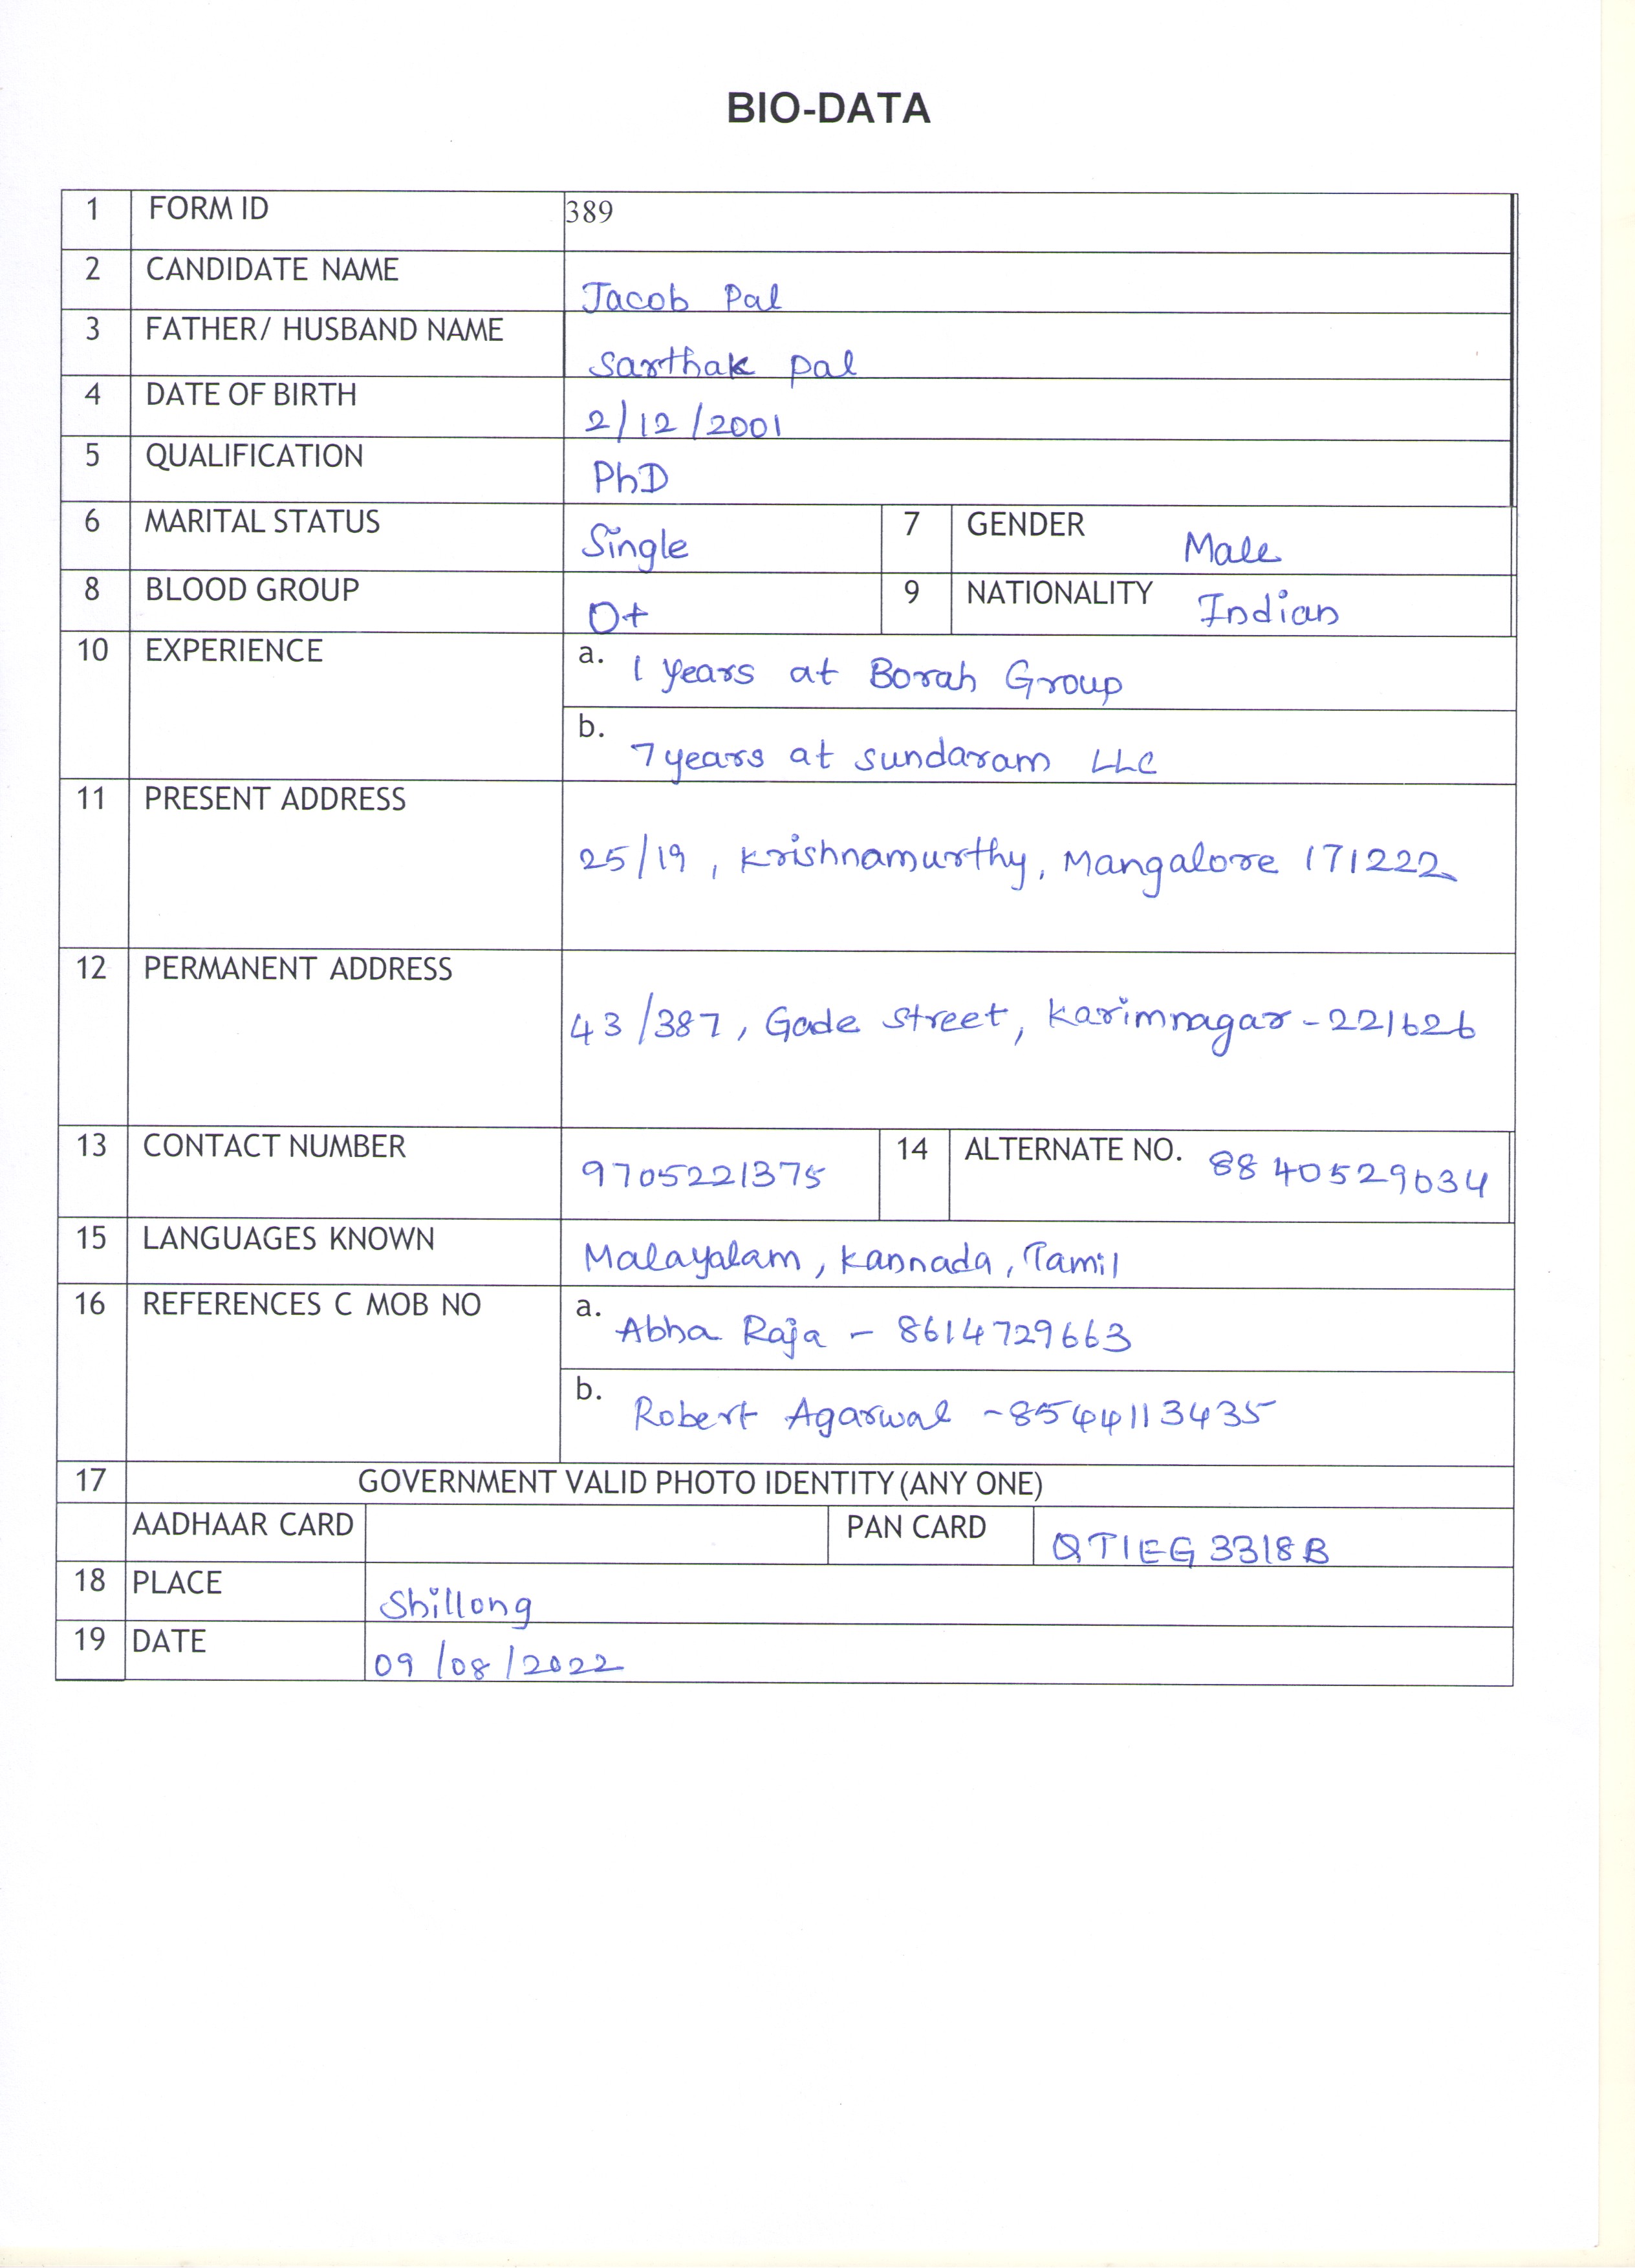 BIO-DATA
1 FORM ID 389
2 CANDIDATE NAME Jacob Pal
3 FATHER/ HUSBAND NAME Sarthak pal
4 DATE OF BIRTH 2/12/2001
5 QUALIFICATION PhD
6 MARITAL STATUS Single 7 GENDER Male
8 BLOOD GROUP O+ 9 NATIONALITY Indian
10 EXPERIENCE a. 1 years at Borah Group
b. 7 years at sundaram LLC
11 PRESENT ADDRESS 25/19, Krishnamurthy, Mangalore 171222
12 PERMANENT ADDRESS 43/387, Gade street, Karimnagar - 221626
13 CONTACT NUMBER 9705221375 14 ALTERNATE NO. 8840529634
15 LANGUAGES KNOWN Malayalam, Kannada, Tamil
16 REFERENCES C MOB NO a. Abha Raja - 8614729663
b. Robert Agarwal - 8544113435
17 GOVERNMENT VALID PHOTO IDENTITY (ANY ONE)
AADHAAR CARD PAN CARD QTIEG3318B
18 PLACE Shillong
19 DATE 09/08/2022